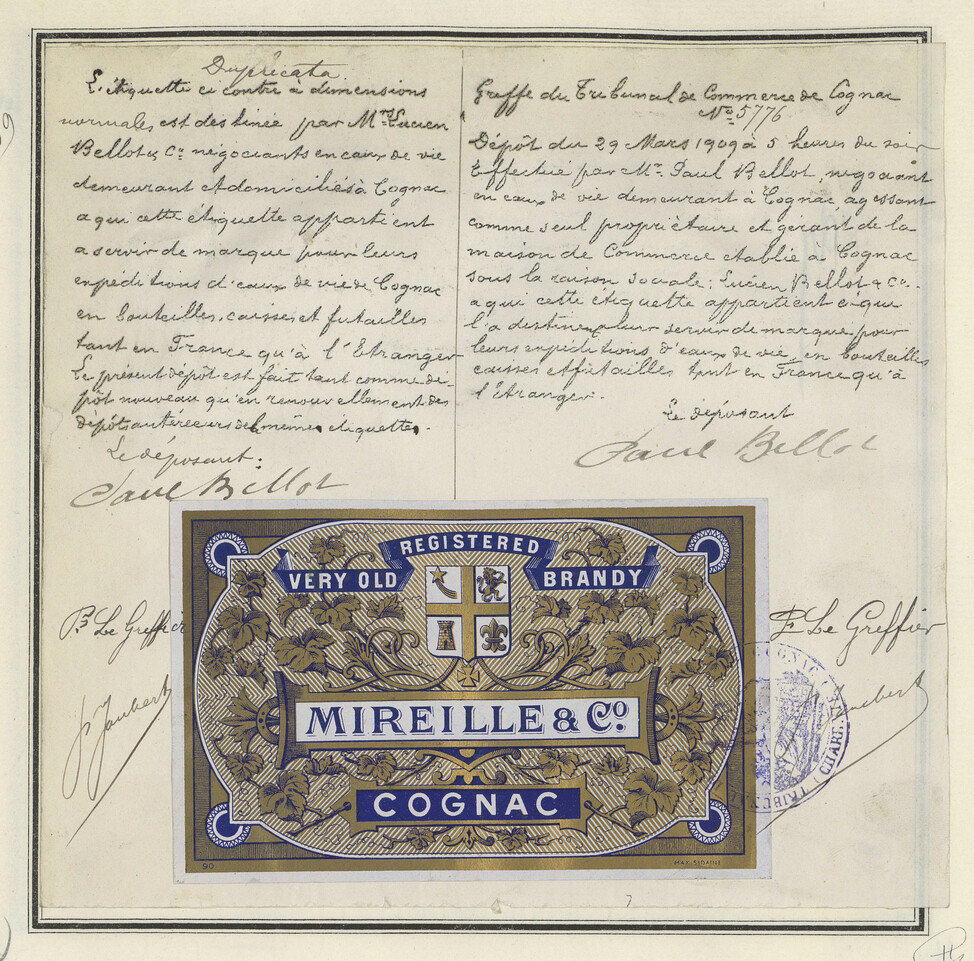 Duplicata.
L'étiquette ci contre à dimensions
normales est destinée par Mrs. Lucien
Bellot & Co négociants en eaux de vie
demeurant et domiciliés à Cognac
a qui cette étiquette appartient
a servir de marque pour leurs
expéditions d'eaux de vie de Cognac
en bouteilles, caisses et futailles
tant en France qu'à l'Etranger
Le présent dépôt est fait tant comme dé-
pôt nouveau qu'en renouvellement des
dépôts antérieurs de même étiquette.
Le déposant:
Paul Bellot
Pr Le Greffier
Joubert
Greffe du Tribunal de Commerce de Cognac
No 5776
Dépôt du 29 Mars 1909 à 5 heures du soir
Effectué par Mr. Paul Bellot, négociant
en eaux de vie demeurant à Cognac, agissant
comme seul propriétaire et gérant de la
maison de Commerce établie à Cognac
sous la raison sociale: Lucien Bellot & Co.
a qui cette étiquette appartient et qui
l'a destinée à leur servir de marque pour
leurs expéditions d'eaux de vie, en bouteilles
caisses et futailles tant en France qu'à
l'étranger.
Le déposant
Paul Bellot
Pr Le Greffier
REGISTERED
VERY OLD BRANDY
MIREILLE & Co.
COGNAC
90
7